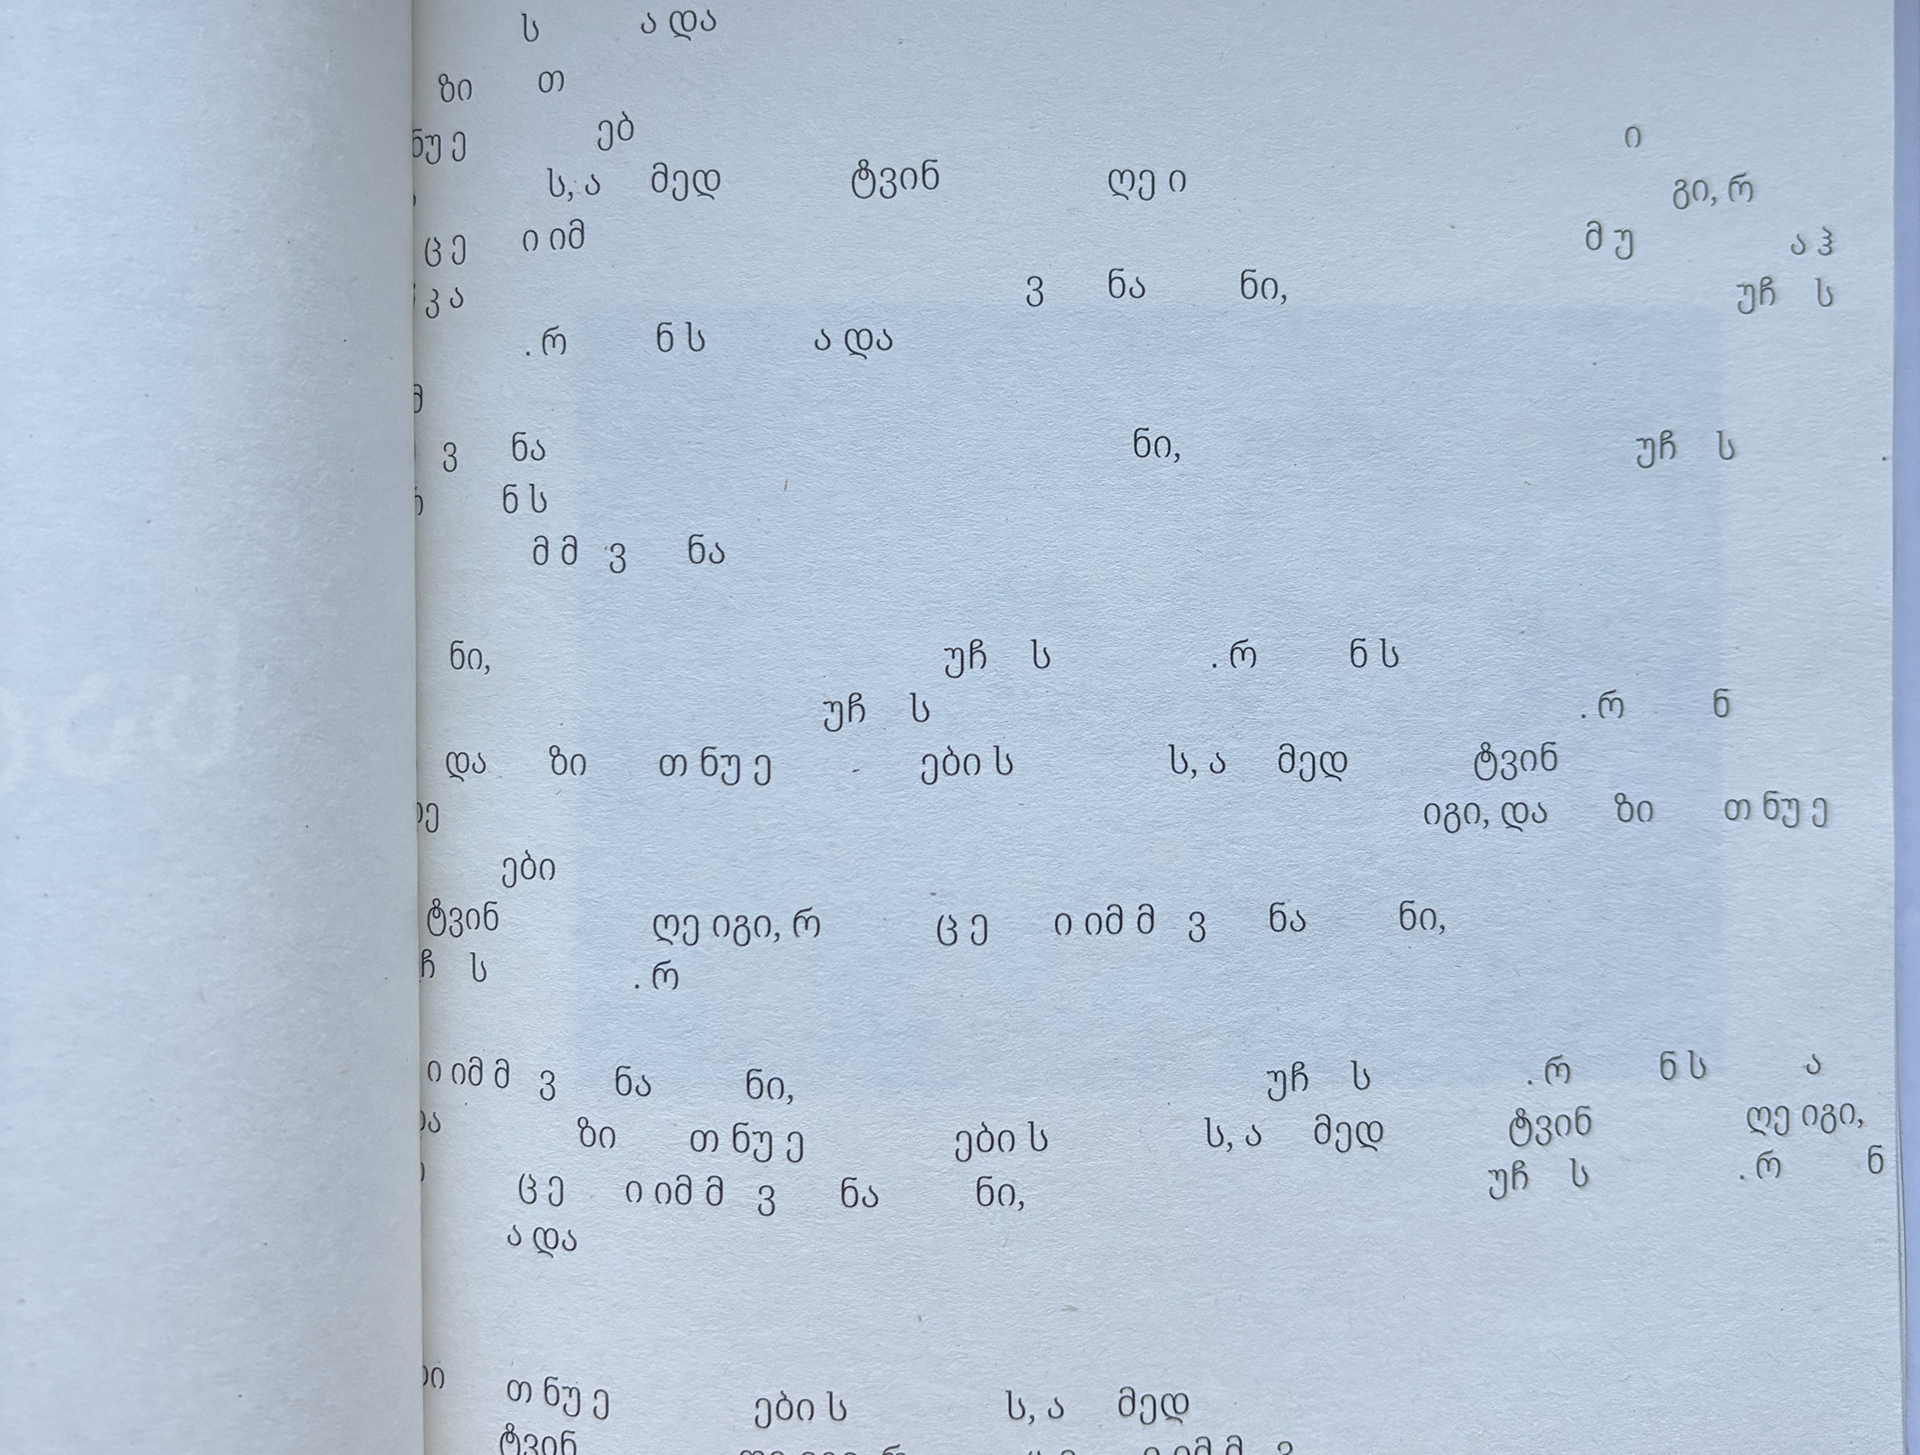 ს ა და
ზი თ
ნუ ე ებ ი
ს, ა მედ ტვინ ღე ი გი, რ
ც ე ი იმ მ უ ა ჰ
კ ა ვ ნა ნი, უჩ ს
. რ ნ ს ა და
მ
ვ ნა ნი, უჩ ს .
ნ ს
მ მ ვ ნა
ნი, უჩ ს . რ ნ ს
უჩ ს . რ ნ
და ზი თ ნუ ე - ები ს ს, ა მედ ტვინ
ღე იგი, და ზი თ ნუ ე
ები
ტვინ ღე იგი, რ ც ე ი იმ მ ვ ნა ნი,
ჩ ს . რ
ი იმ მ ვ ნა ნი, უჩ ს . რ ნ ს ა
და ზი თ ნუ ე ები ს ს, ა მედ ტვინ ღე იგი,
ც ე ი იმ მ ვ ნა ნი, უჩ ს . რ ნ
ა და
თ ნუ ე ები ს ს, ა მედ
ტვინ ღე იგი, რ ც ე ი იმ მ ვ